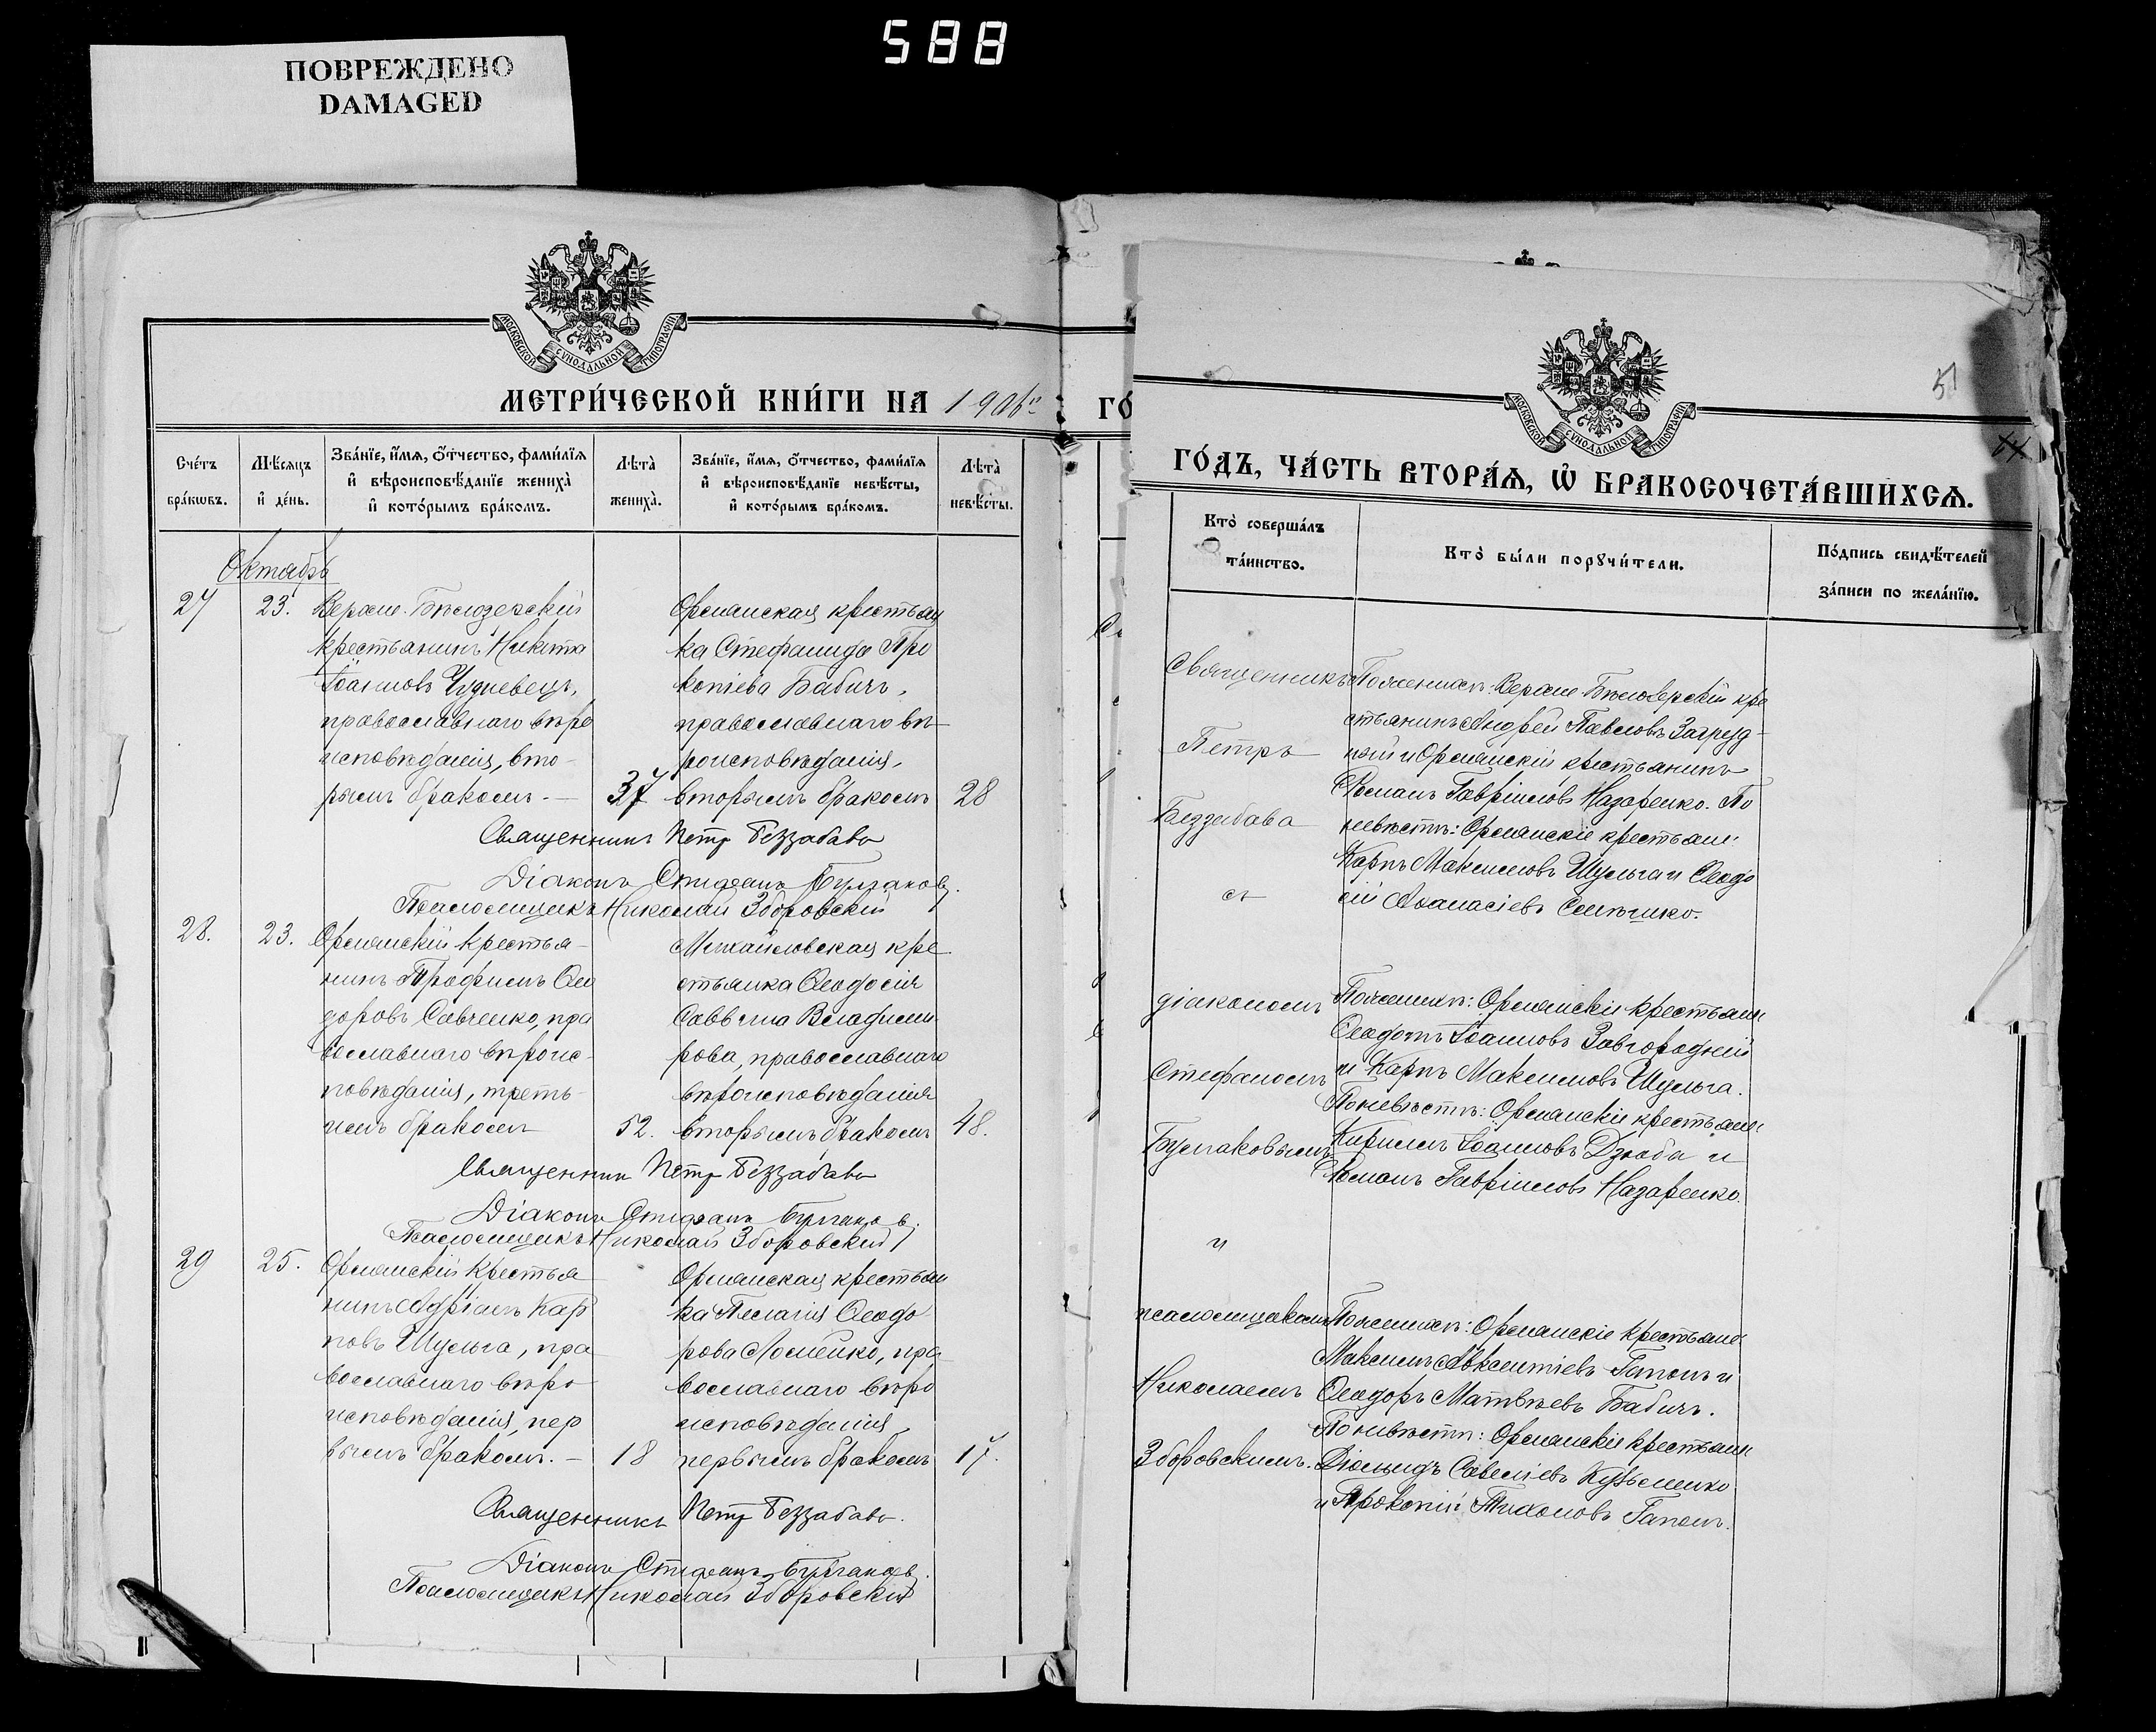 588
ПОВРЕЖДЕНО
DAMAGED
МОСКОВСКОЙ СѴНОДАЛЬНОЙ ТИПОГРАФІИ
МЕТРИ́ЧЕСКОЙ КНИ́ГИ НА 1906й
Сче́тъ бра́кωвъ.
Мѣ́сяцъ и҆ де́нь.
Зва́нїе, и҆́мя, о҆́тчество, фами́лїя и҆ вѣроисповѣ́данїе жениха̀ и҆ кото́рымъ бра́комъ.
Лѣта̀ жениха̀.
Зва́нїе, и҆́мя, о҆́тчество, фами́лїя и҆ вѣроисповѣ́данїе невѣ́сты, и҆ кото́рымъ бра́комъ.
Лѣта̀ невѣ́сты.
Октябрь
27
23.
Верхне-Бѣлозерскій
крестьянинъ Никита
Іоанновъ Чудневецъ,
православнаго вѣро
исповѣданія, вто-
рымъ бракомъ.—
37
Орлянская крестьян
ка Стефанида Про
копіева Бабичъ,
православнаго вѣ-
роисповѣданія,
вторымъ бракомъ
28
Священникъ Петр Беззабава
Діаконъ Стефанъ Булгаковъ.
Псаломщикъ Николай Зборовскій
28.
23.
Орлянскій крестья-
нинъ Трофимъ Ѳео
доровъ Савченко, пра
вославнаго вѣроис-
повѣданія, треть-
имъ бракомъ
52.
Михайловская кре
стьянка Ѳеодосія
Саввина Владими-
рова, православнаго
вѣроисповѣданія
вторымъ бракомъ
48.
Священник Петр Беззабава
Діаконъ Стефанъ Булгаков.
Псаломщикъ Николай Зборовскій
29
25.
Орлянскій крестья
нинъ Адріанъ Кар
повъ Шульга, пра
вославнаго вѣро
исповѣданія, пер
вымъ бракомъ.—
18
Орлянская крестьян
ка Пелагія Ѳеодо
рова Ломейко, пра
вославнаго вѣро
исповѣданія
первымъ бракомъ
17.
Священникъ Петр Беззабава.
Діаконъ Стефанъ Булгаков.
Псаломщикъ Николай Зборовскій
ГО
51
МОСКОВСКОЙ СѴНОДАЛЬНОЙ ТИПОГРАФІИ
ГО́ДЪ, ЧА́СТЬ ВТОРА́Я, Ѡ҆ БРАКОСОЧЕТА́ВШИХСЯ.
Кто̀ соверша́лъ та́инство.
Кто̀ бы́ли порꙋчи́тели.
По́дпись свидѣ́телей за́писи по жела́нїю.
Священникъ
Петръ
Беззабава
съ
діакономъ
Стефаномъ
Булгаковымъ
и
псаломщикомъ
Николаемъ
Зборовскимъ.
По женихѣ: Верхне-Бѣлозерскій кре
стьянинъ Андрей Павловъ Загруд-
ный и Орлянскій крестьянинъ
Романъ Гавріиловъ Назаренко. По
невѣстѣ: Орлянскіе крестьяне:
Карпъ Максимовъ Шульга и Ѳеодо
сій Аѳанасіевъ
По женихѣ: Орлянскіе крестьяне
Ѳеодотъ Іоанновъ Завгородній
и Карпъ Максимовъ Шульга.
По невѣстѣ: Орлянскіе крестьяне
Кириллъ Іоанновъ Дзюба и
Романъ Гавріиловъ Назаренко.
По женихѣ: Орлянскіе крестьяне
Максимъ Авксентіевъ Гапонъ и
Ѳеодоръ Матвѣевъ Бабичъ.
По невѣстѣ: Орлянскіе крестьяне
Діомидъ Савеліевъ Кузьменко
и Прокопій Тихоновъ Гапонъ.